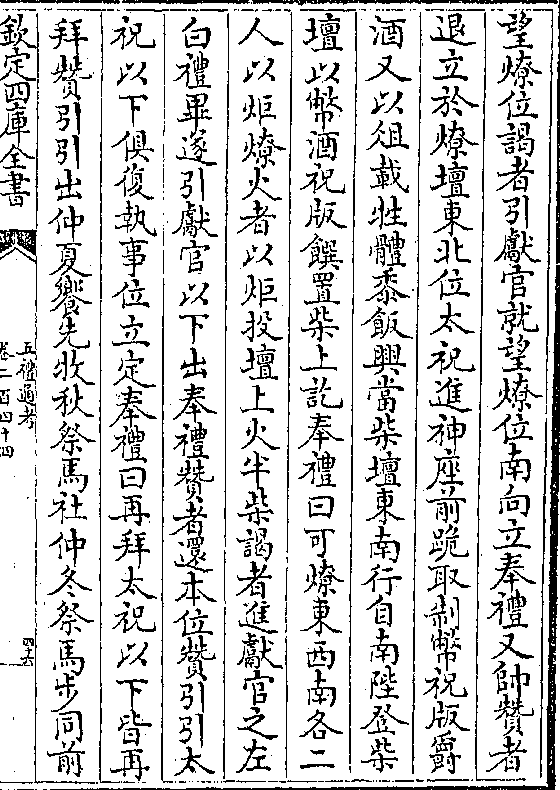 望燎位謁者引獻官就望燎位南向立奉禮又帥贊者
退立於燎壇東北位太祝進神座前跪取制幣祝版爵
酒又以俎載牲體黍飯興當柴壇東南行自南陛登柴
壇以幣酒祝版饌置柴上訖奉禮曰可燎東西南各二
人以炬燎火者以炬投壇上火半柴謁者進獻官之左
白禮畢遂引獻官以下出奉禮贊者還本位贊引引太
祝以下俱復執事位立定奉禮曰再拜太祝以下皆再
拜贊引引出仲夏饗先牧秋祭馬社仲冬祭馬步同前
欽定四庫全書
五禮通考
卷二百四十四